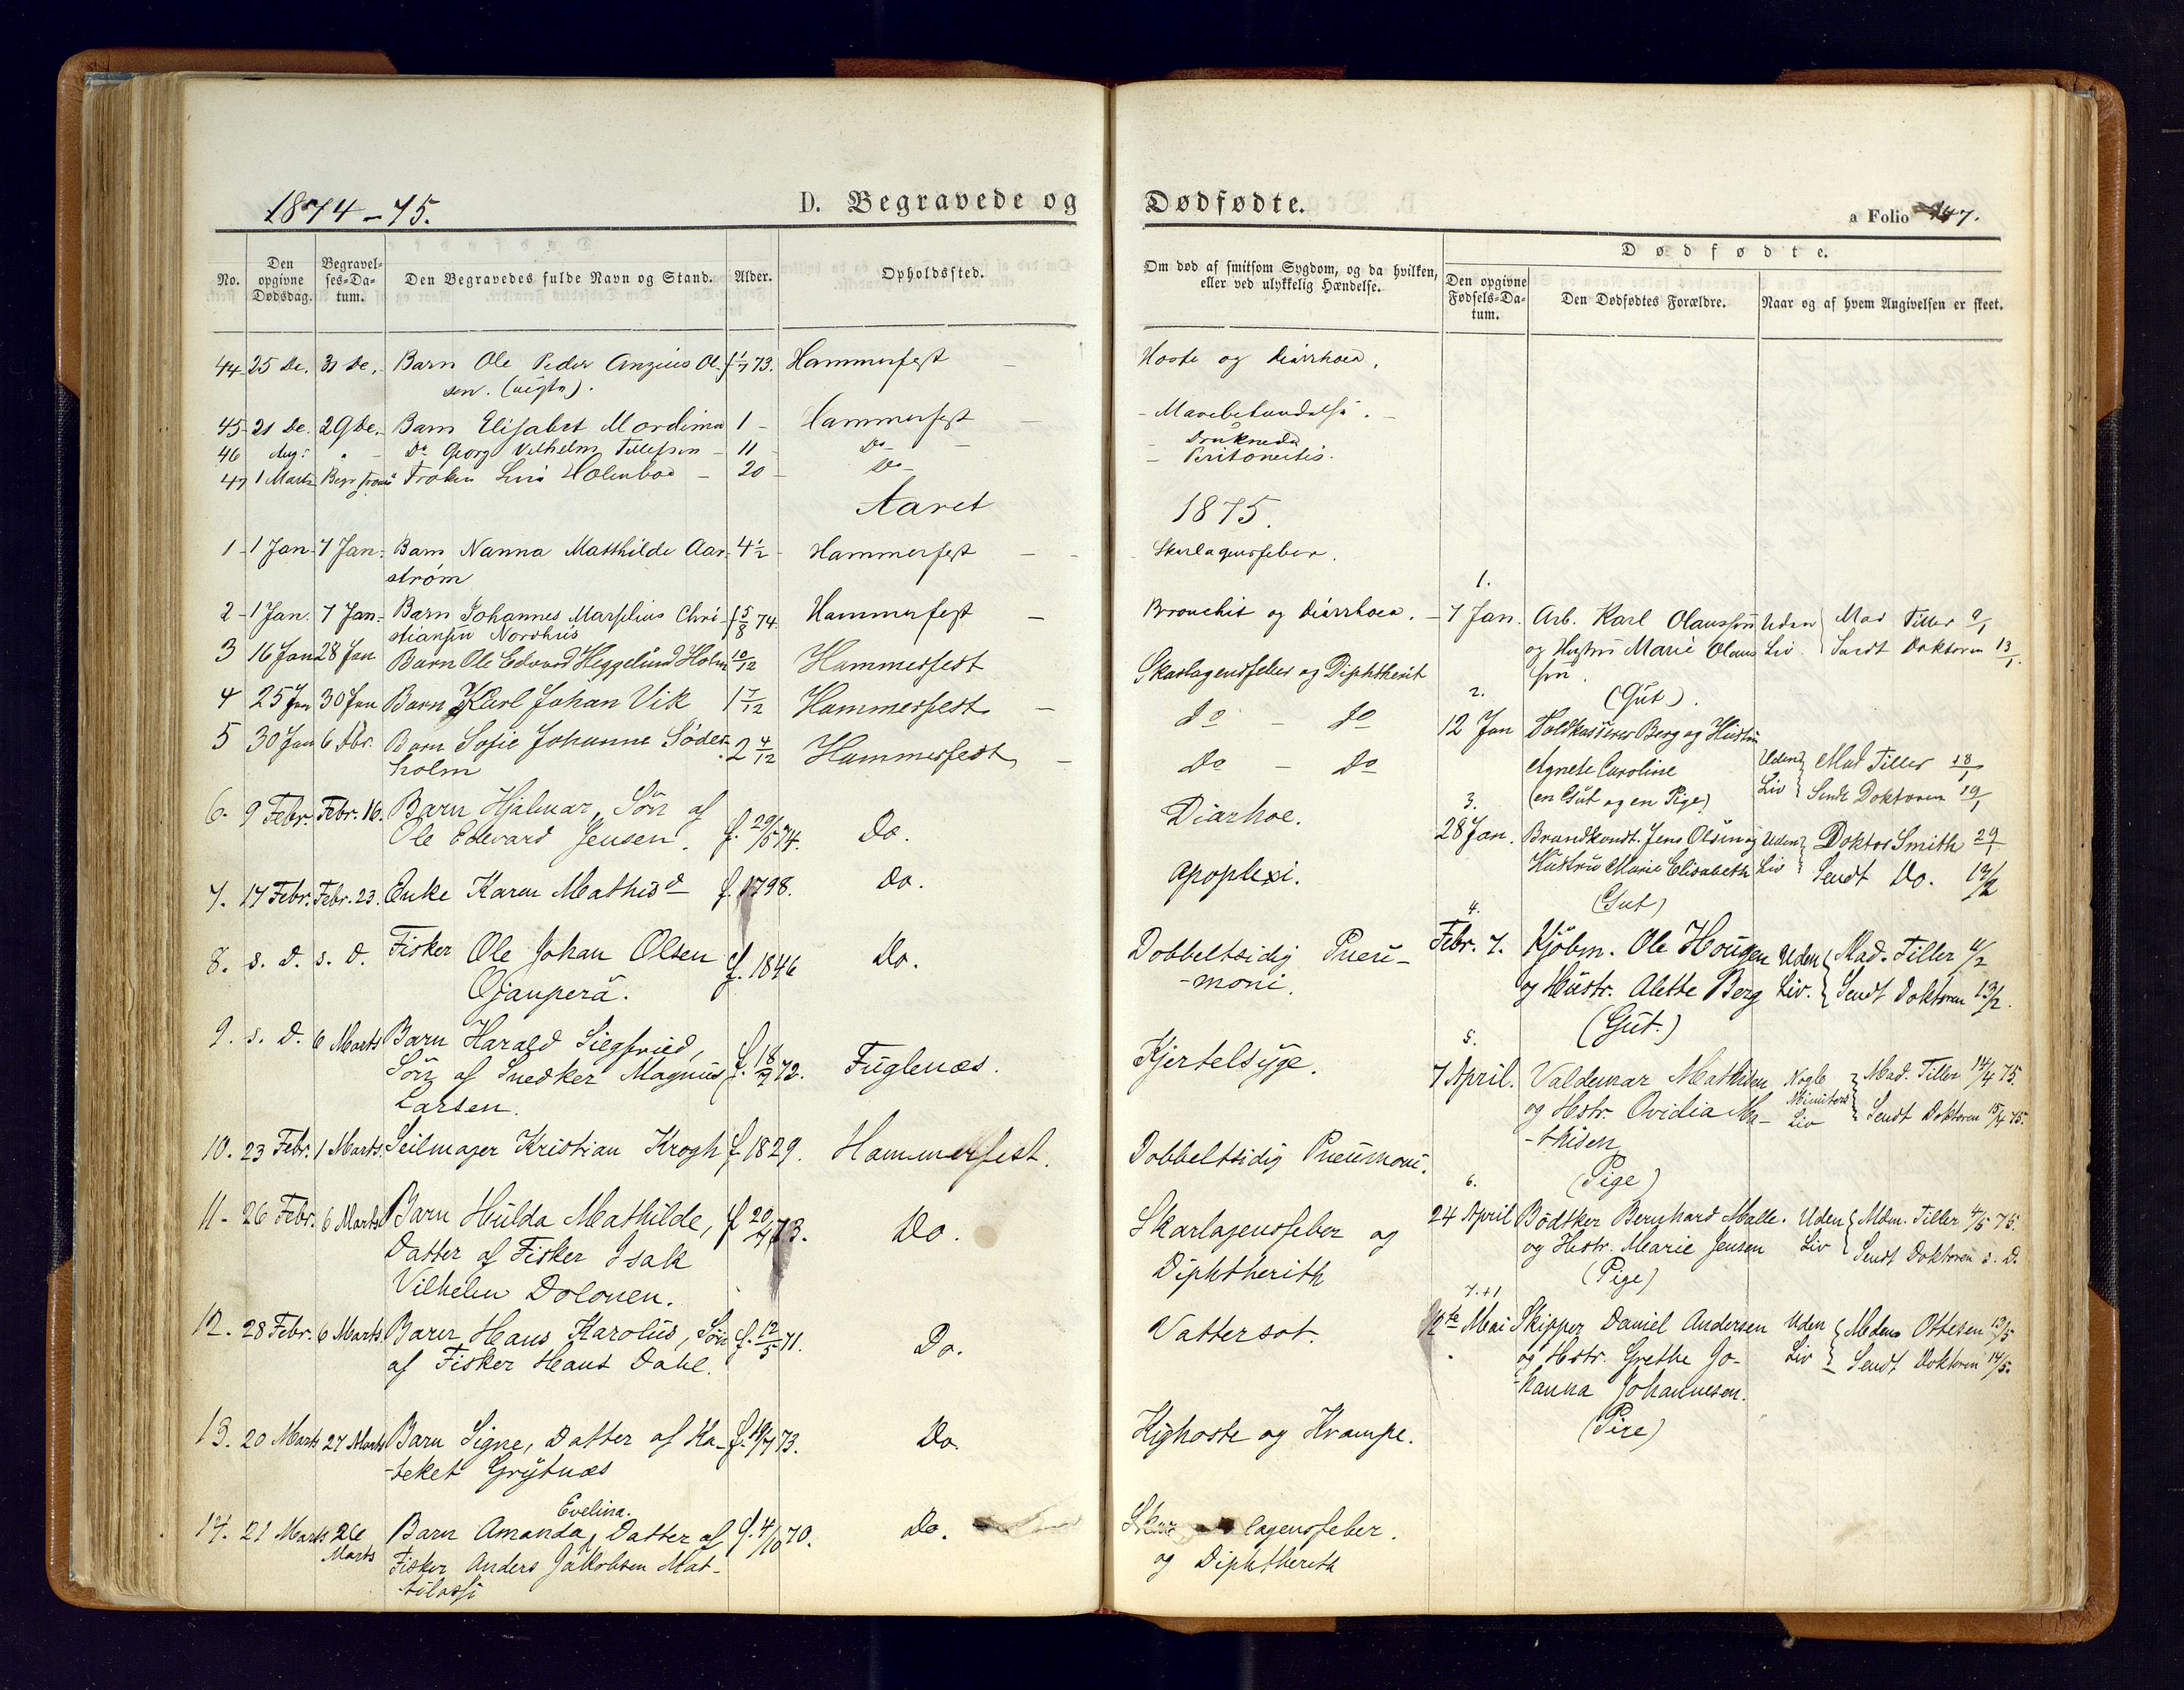 1874-75.
D. Begravede og Dødfødte.
a Folio 147.
No.
Den opgivne Dødsdag.
Begravelses-Datum.
Den Begravedes fulde Navn og Stand.
Alder.
Opholdssted.
Om død af smitsom Sygdom, og da hvilken, eller ved ulykkelig Hændelse.
Dødfødte.
Den opgivne Fødsels-Datum.
Den Dødfødtes Forældre.
Naar og af hvem Angivelsen er skeet.
44 - 25 De. 31 De. Barn Ole Peder Ol- f 1/7 73. Hammerfest - Hoste og Diarrhoea.
sen. (uægte).
45 - 21 De. 29 De. Barn Elisabet 1 - Hammerfest -
46 Aug. " - Do Georg Vilhelm Tellefsen - 11 - Do - - Druknede
47 1 Marts Frøken Holmboe - 20 - Do - - Peritoneitis.
Aaret 1875.
1 - 1 Jan. 7 Jan. Barn Nanna Matthilde Aar- 4 1/2 - Hammerfest - - Skarlagensfeber.
strøm
2 - 1 Jan. 7 Jan. Barn Johannes Marselius Chri- f 5/8 74. Hammerfest - Bronchit og Diarrhoea. -
stiansen Nordhus
3 16 Jan 28 Jan Barn Ole Edvard Heggelund Holm 10/12 Hammerfest Skarlagensfeber og Diphtherit
4 25 Jan 30 Jan Barn Karl Johan Vik 1 7/12 Hammerfest - do - do
5 30 Jan 6 Fbr. Barn Sofie Johanne Søder- 2 4/12 Hammerfest - Do - Do
holm
6. 9 Febr. Febr. 16. Barn Hjalmar, Søn af
Ole Edevard Jensen. f. 29/5 74. Do. Diarhoe.
7. 17 Febr. Febr. 23. Enke Karen Mathisd f. 1798. Do. Apoplexi.
8. s. D. s. D. Fisker Ole Johan Olsen f. 1846 Do. Dobbeltsidig Pneu-
Ojanperä. -moni.
9. s. D. 6 Marts Barn Harald Siegfried,
Søn af Snedker Magnus f. 18/7 72. Fuglenæs. Kjertelsyge.
Larsen.
10. 23 Febr. 1 Marts. Seilmager Kristian Krogh f. 1829. Hammerfest. Dobbeltsidig Pneumoni.
11 - 26 Febr. 6 Marts Barn Hulda Mathilde, f 20/4 73. Do. Skarlagensfeber og
Datter af Fisker Isak Diphtherith
Vilhelm Dolonen.
12. 28 Febr. 6 Marts. Barn Hans Karolus, Søn f. 12/5 71. Do. Vattersot.
af Fisker Hans Dahl.
13. 20 Marts 27 Marts Barn Signe, Datter af Ka- f. 19/7 73. Do. Kighoste og Krampe.
-teket Grytnæs
Evelina.
14. 21 Marts 26 Marts Barn Amanda, Datter af f. 4/10 70. Do. Skarlagensfeber.
Fisker Anders Jakobsen Mat- og Diphtherith
-tilassi
1.
7 Jan. Arb. Karl Olaussen Uden Mad Tiller 9/1
og Hustru Marie Olaus Liv. Sendt Doktoren 13/1.
sen.
(Gut).
2.
12 Jan Toldkasserer Berg og Hustru
Agnete Caroline Uden Mad Tiller 18/1
(en Gut og en Pige) Liv Sendt Doktoren 19/1
3.
28 Jan. Brandkonst. Jens Olsen og Uden Doktor Smith 29/1
Hustru Marie Elisabeth Liv Sendt Do. 12/2
(Gut)
4.
Febr. 7. Kjøbm. Ole Hougen Uden Mad. Tiller 11/2
og Hustr. Alette Berg Liv. Sendt Doktoren 13/2.
(Gut.)
5.
7 April. Valdemar Mathisen Nogle Mad. Tiller 14/4 75.
og Hstr. Ovidia Ma- Minuters Liv Sendt Doktoren 15/4 75.
-thisen
(Pige)
6.
24 April Bödtker Bernhard Malle. Uden Mdm. Tiller 4/5 75.
og Hstr. Marie Jensen Liv Sendt Doktoren s. D.
(Pige)
7.
12te Mai Skipper Daniel Andersen Uden Mdme Ottesen 13/5
og Hstr. Grethe Jo- Liv Sendt Doktoren 14/5.
-hanna Johannesen.
(Pige)